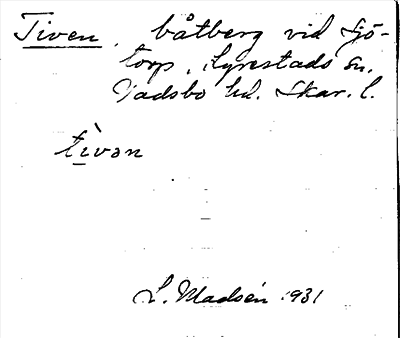 Tiven, båtberg vid Sjö-
torp, Lyrestads sn.
Vadsbo hd. Skar. l.
tì̱vən
L. Madsén 1931